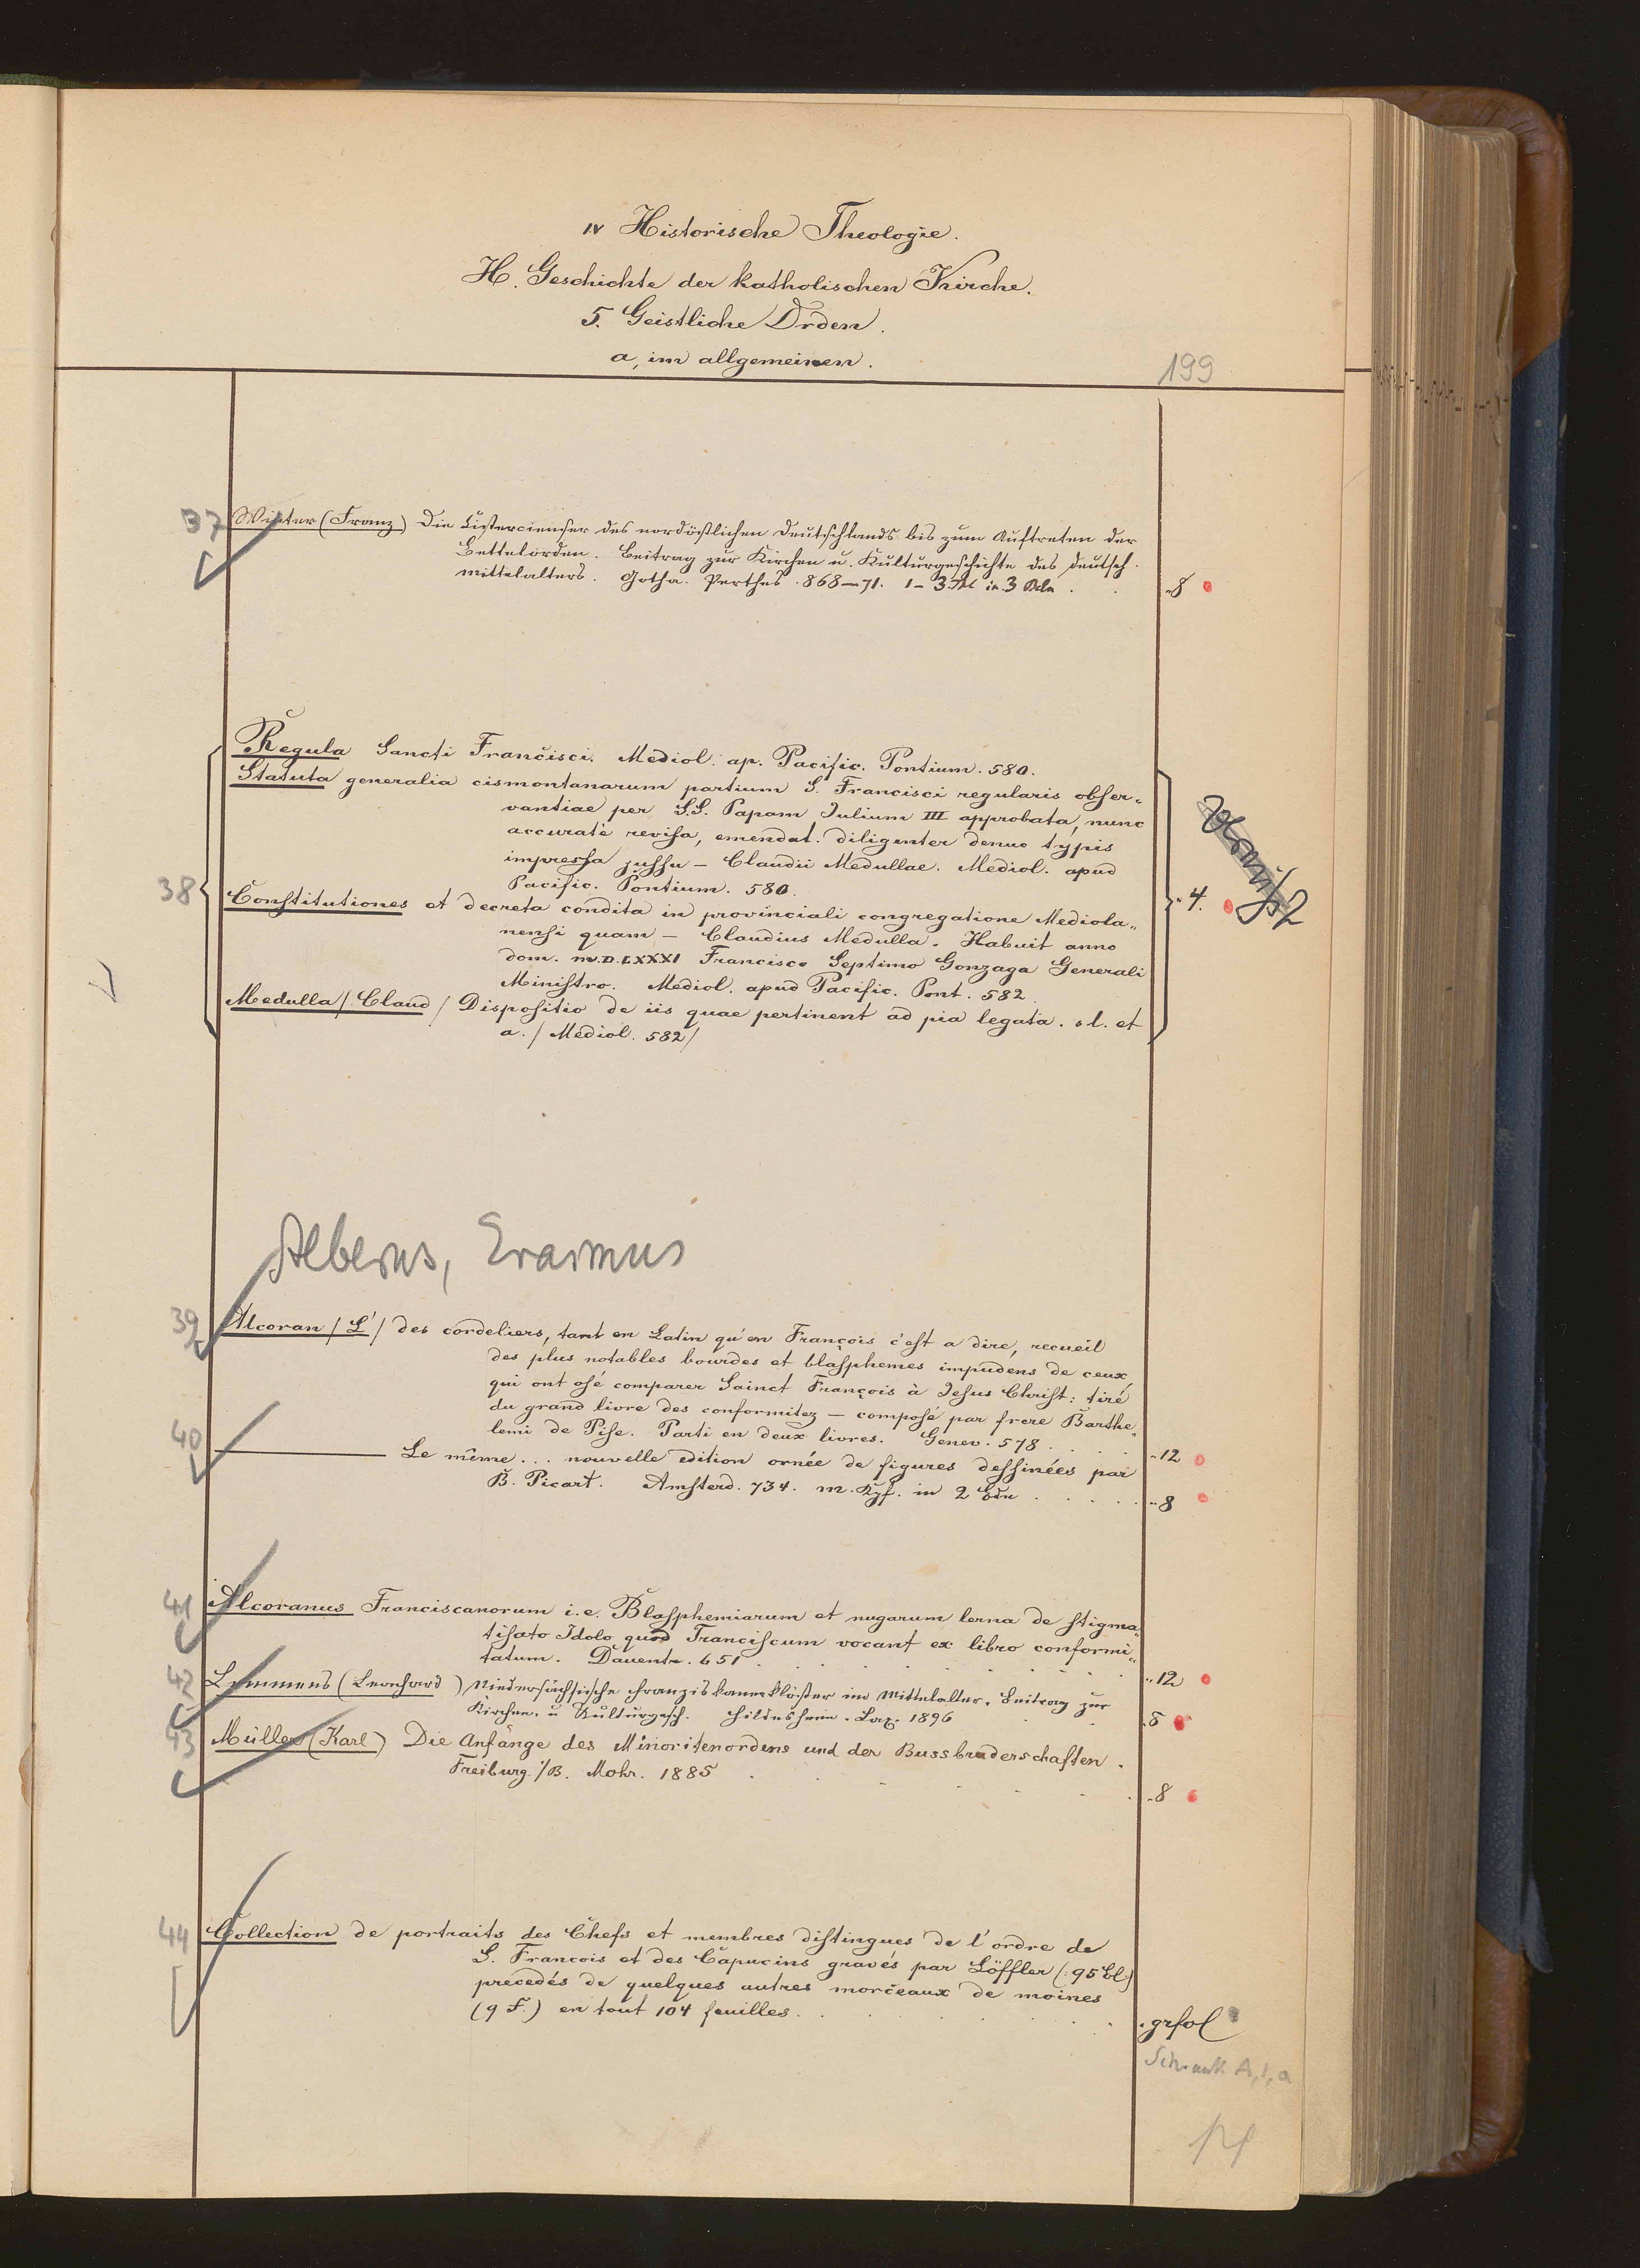 IV Historische Theologie.
H. Geschichte der katholischen Kirche.
5. Geistliche Orden.
a, im allgemeinen.
199
37 Winter (Franz) Die Cistercienser des nordöstlichen Deutschlands bis zum Auftreten der
Bettelorden. Beitrag zur Kirchen u. Kulturgeschichte des deutsch.
Mittelalters. Gotha. Perthes. 868–71. 1–3. Thl in 3 Bdn . . „8
Regula Sancti Francisci. Mediol. ap. Pacific. Pontium. 580.
Statuta generalia cismontanarum partium S. Francisci regularis obser„
vantiae per S.S. Papam Julium III approbata, nunc
accuratè revisa, emendat. diligenter denuo typis
impressa jussu – Claudii Medullae. Mediol. apud
Pacific. Pontium. 580.
38 Constitutiones et decreta condita in provinciali congregatione Mediola„
nensi quam – Claudius Medulla. Habuit anno
dom. M.D.LXXXI Francisco Septimo Gonzaga Generali
Ministro. Mediol. apud Pacific. Pont. 582.
Medulla / Claud / Dispositio de iis quae pertinent ad pia legata. s l. et
a. / Mediol. 582 /
„4.
Vermißt
Alberus, Erasmus
39 Alcoran / L' / des cordeliers, tant en Latin qu'en François c'est a dire, recueil
des plus notables bourdes et blasphemes impudens de ceux,
qui ont osé comparer Sainct François à Jesus Christ: tiré
du grand livre des conformitez – composé par frere Barthe„
lemi de Pise. Parti en deux livres. Genev. 578. . . . . „12
40 ——— Le même... nouvelle edition ornée de figures dessinées par
B. Picart. Amsterd. 734. m. Kpf. in 2 Bdn . . . . . „8
41 Alcoranus Franciscanorum i.e. Blasphemiarum et nugarum lerna de stigma„
tisato Idolo quod Franciscum vocant ex libro conformi„
tatum. Daventr. 651 . . . . „12
42 Lemmens (Leonhard) Niedersächsische Franziskanerklöster im Mittelalter. Beitrag zur
Kirchen. u Kulturgesch. Hildesheim. Lax. 1896 . . „8
43 Müller (Karl) Die Anfänge des Minoritenordens und der Bussbruderschaften.
Freiburg. i/B. Mohr. 1885 . . . . „8
44 Collection de portraits des Chefs et membres distingues de l'ordre de
S. Francois et des Capucins gravés par Löffler (: 95 Bl:)
precedés de quelques autres morceaux de moines
(9 F.) en tout 104 feuilles. . . . . grfol
Schrank A, 1, a